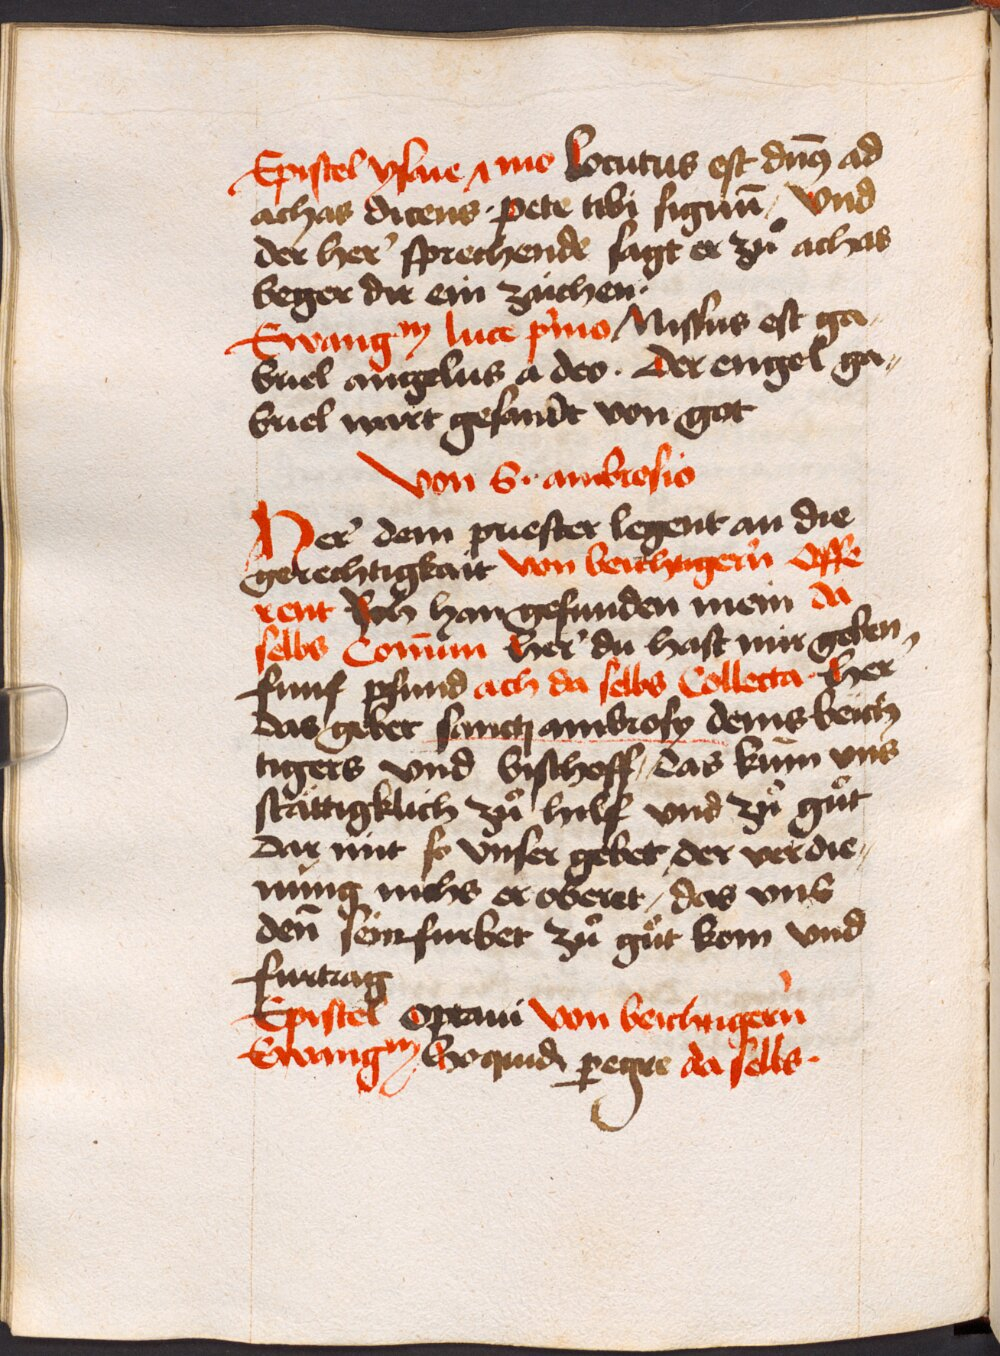 Epistel ysaie ʌ mo Locutus est dn̄s ad
achas dicens · pete tibi signū / Vnd
der her͛ sprechende sagt er zů achas
beger dir ein zaichen ·
Ewangm luce pͥmo Missus est ga-
briel angelus a deo · Der engel ga-
briel wart gesandt von got
Von S · ambrosio
Her͛ dem priester legent an die
gerechtigkait von beichtigern̄ Offe
rent Ich han gefunden mein da
selbs Com̄um her͛ du hast mir geben
funf pfund ach da selbs Collecta · Her
das gebet sancti ambrosy deins beich
tigers vnd bischoff / das kum vns
stättigklich zů hilf vnd zů gůt
dar mit so vnser gebet der verdie-
nung nichs er oberet / das vns
den̄ sein furbet zů gůt kom vnd
furtrag
Epistel Optaui von beichtigern̄
Ewangm Ho quid peregre da selbs ·